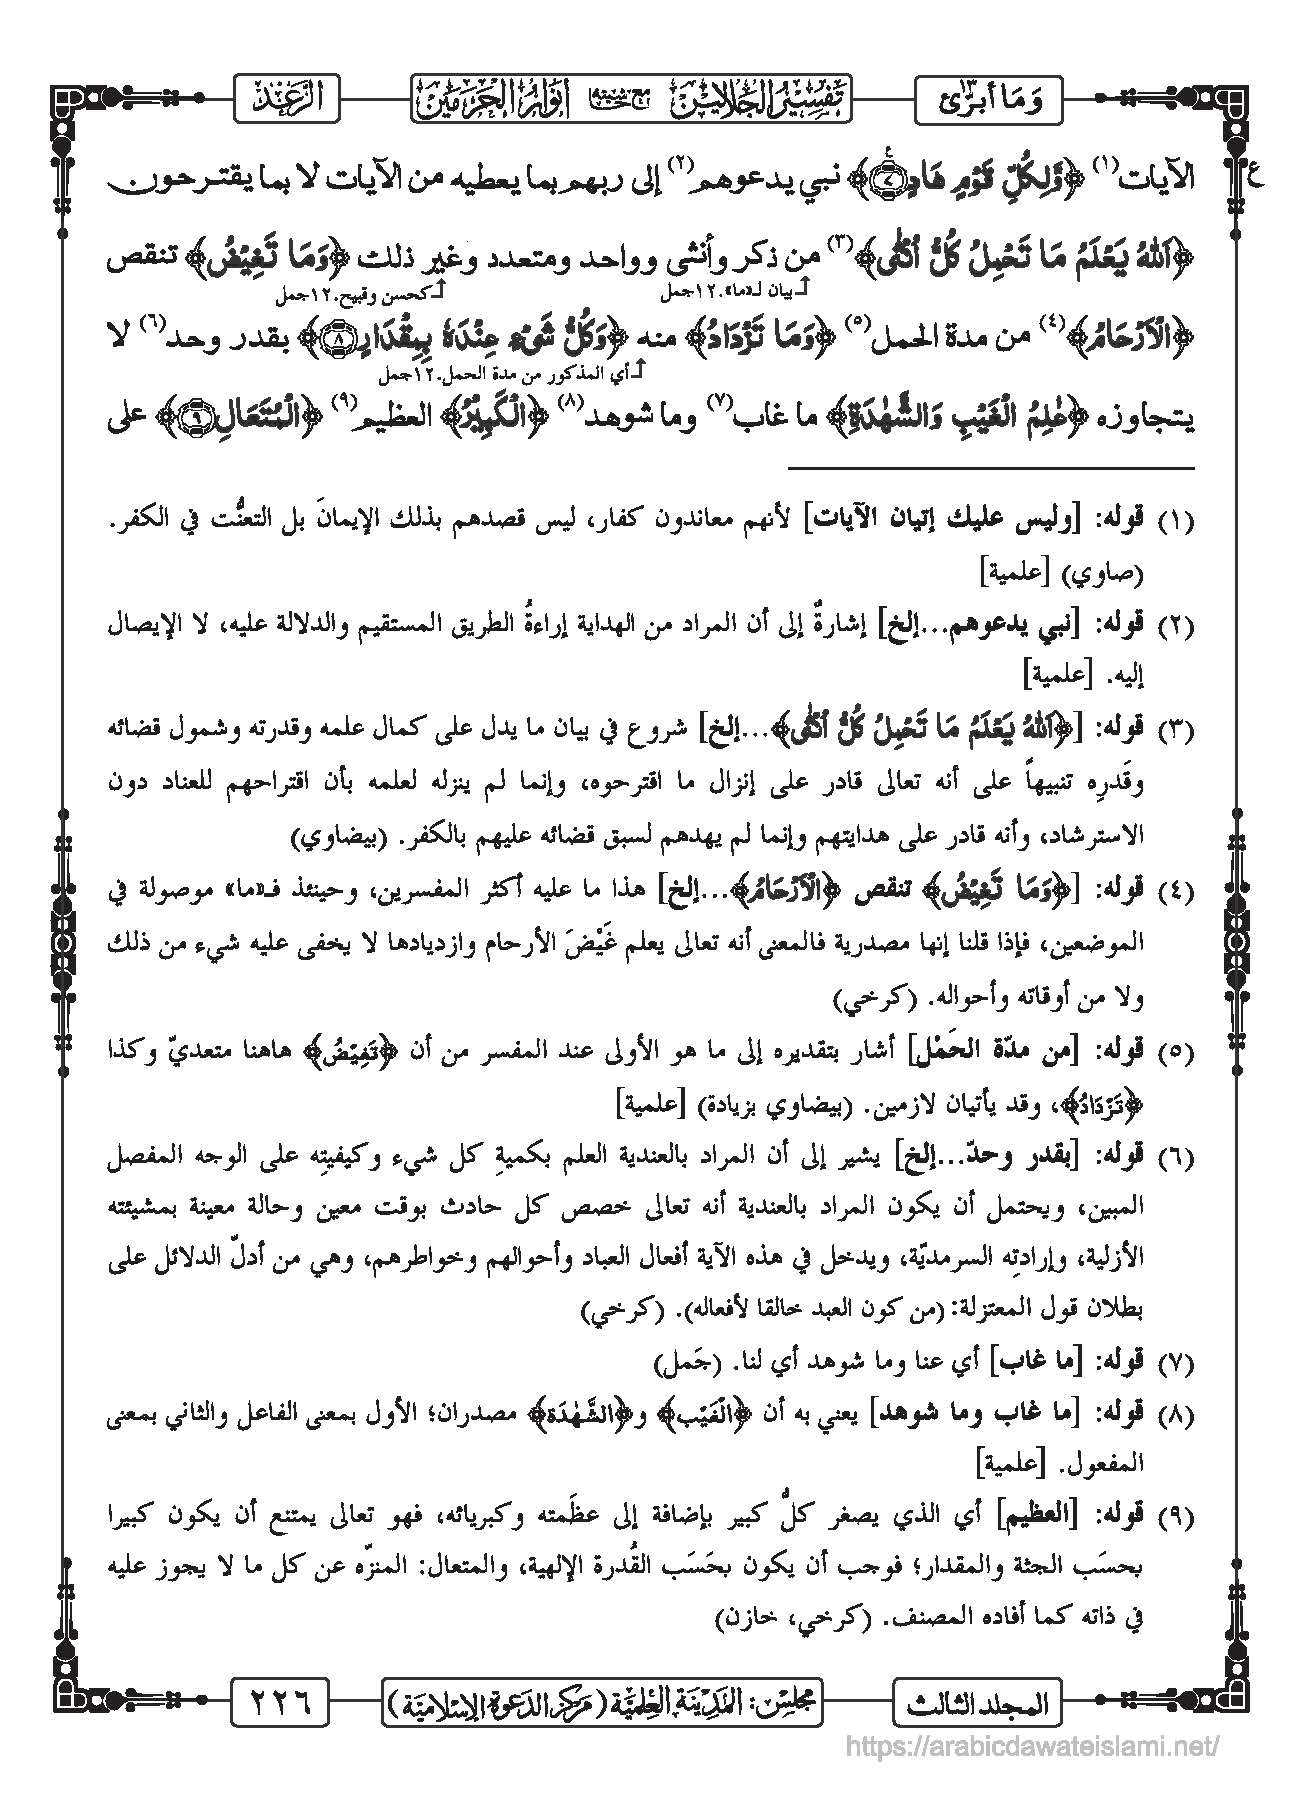 وَمَا أبرّئ ١٣
تفسير الجلالين مع حاشيته أنوار الحرمين
الرعد
ع
الآيات(١) ﴿وَّلِكُلِّ قَوْمٍ هَادٍ ٧﴾ نبي يدعوهم(٢) إلى ربهم بما يعطيه من الآيات لا بما يقترحون
﴿اَللهُ يَعْلَمُ مَا تَحْمِلُ كُلُّ اُنْثٰى﴾(٣) من ذكر وأنثى وواحد ومتعدد وغير ذلك ﴿وَمَا تَغِيْضُ﴾ تنقص
بيان لـ«ما».١٢جمل
كحسن وقبيح.١٢جمل
﴿الْاَرْحَامُ﴾(٤) من مدة الحمل(٥) ﴿وَمَا تَزْدَادُ﴾ منه ﴿وَكُلُّ شَىْءٍ عِنْدَهٗ بِمِقْدَارٍ ٨﴾ بقدر وحد(٦) لا
أي المذكور من مدة الحمل.١٢جمل
يتجاوزه ﴿عٰلِمُ الْغَيْبِ وَالشَّهٰدَةِ﴾ ما غاب(٧) وما شوهد(٨) ﴿الْكَبِيْرُ﴾ العظيم(٩) ﴿الْمُتَعَالِ ٩﴾ على
(١) قوله: [وليس عليك إتيان الآيات] لأنهم معاندون كفار، ليس قصدهم بذلك الإيمانَ بل التعنُّت في الكفر.
(صاوي) [علمية]
(٢) قوله: [نبي يدعوهم...إلخ] إشارةٌ إلى أن المراد من الهداية إراءةُ الطريق المستقيم والدلالة عليه، لا الإيصال
إليه. [علمية]
(٣) قوله: [﴿اَللهُ يَعْلَمُ مَا تَحْمِلُ كُلُّ اُنْثٰى﴾...إلخ] شروع في بيان ما يدل على كمال علمه وقدرته وشمول قضائه
وقَدرِه تنبيهاً على أنه تعالى قادر على إنزال ما اقترحوه، وإنما لم ينزله لعلمه بأن اقتراحهم للعناد دون
الاسترشاد، وأنه قادر على هدايتهم وإنما لم يهدهم لسبق قضائه عليهم بالكفر. (بيضاوي)
(٤) قوله: [﴿وَمَا تَغِيْضُ﴾ تنقص ﴿الْاَرْحَامُ﴾...إلخ] هذا ما عليه أكثر المفسرين، وحينئذ فـ«ما» موصولة في
الموضعين، فإذا قلنا إنها مصدرية فالمعنى أنه تعالى يعلم غَيْضَ الأرحام وازديادها لا يخفى عليه شيء من ذلك
ولا من أوقاته وأحواله. (كرخي)
(٥) قوله: [من مدّة الحَمْل] أشار بتقديره إلى ما هو الأولى عند المفسر من أن ﴿تَغِيْضُ﴾ هاهنا متعديّ وكذا
﴿تَزْدَادُ﴾، وقد يأتيان لازمين. (بيضاوي بزيادة) [علمية]
(٦) قوله: [بقدر وحدّ...إلخ] يشير إلى أن المراد بالعندية العلم بكميةِ كل شيء وكيفيتِه على الوجه المفصل
المبين، ويحتمل أن يكون المراد بالعندية أنه تعالى خصص كل حادث بوقت معين وحالة معينة بمشيئته
الأزلية، وإرادتِه السرمديّة، ويدخل في هذه الآية أفعال العباد وأحوالهم وخواطرهم، وهي من أدلّ الدلائل على
بطلان قول المعتزلة: (من كون العبد خالقا لأفعاله). (كرخي)
(٧) قوله: [ما غاب] أي عنا وما شوهد أي لنا. (جَمل)
(٨) قوله: [ما غاب وما شوهد] يعني به أن ﴿الْغَيْب﴾ و﴿الشَّهٰدَة﴾ مصدران؛ الأول بمعنى الفاعل والثاني بمعنى
المفعول. [علمية]
(٩) قوله: [العظيم] أي الذي يصغر كلُّ كبير بإضافة إلى عظَمته وكبريائه، فهو تعالى يمتنع أن يكون كبيرا
بحسَب الجثة والمقدار؛ فوجب أن يكون بحَسَب القُدرة الإلهية، والمتعال: المنزّه عن كل ما لا يجوز عليه
في ذاته كما أفاده المصنف. (كرخي، خازن)
المجلد الثالث
مجلس: المدينة العلمية (مركز الدعوة الإسلامية)
٢٢٦
https://arabicdawateislami.net/